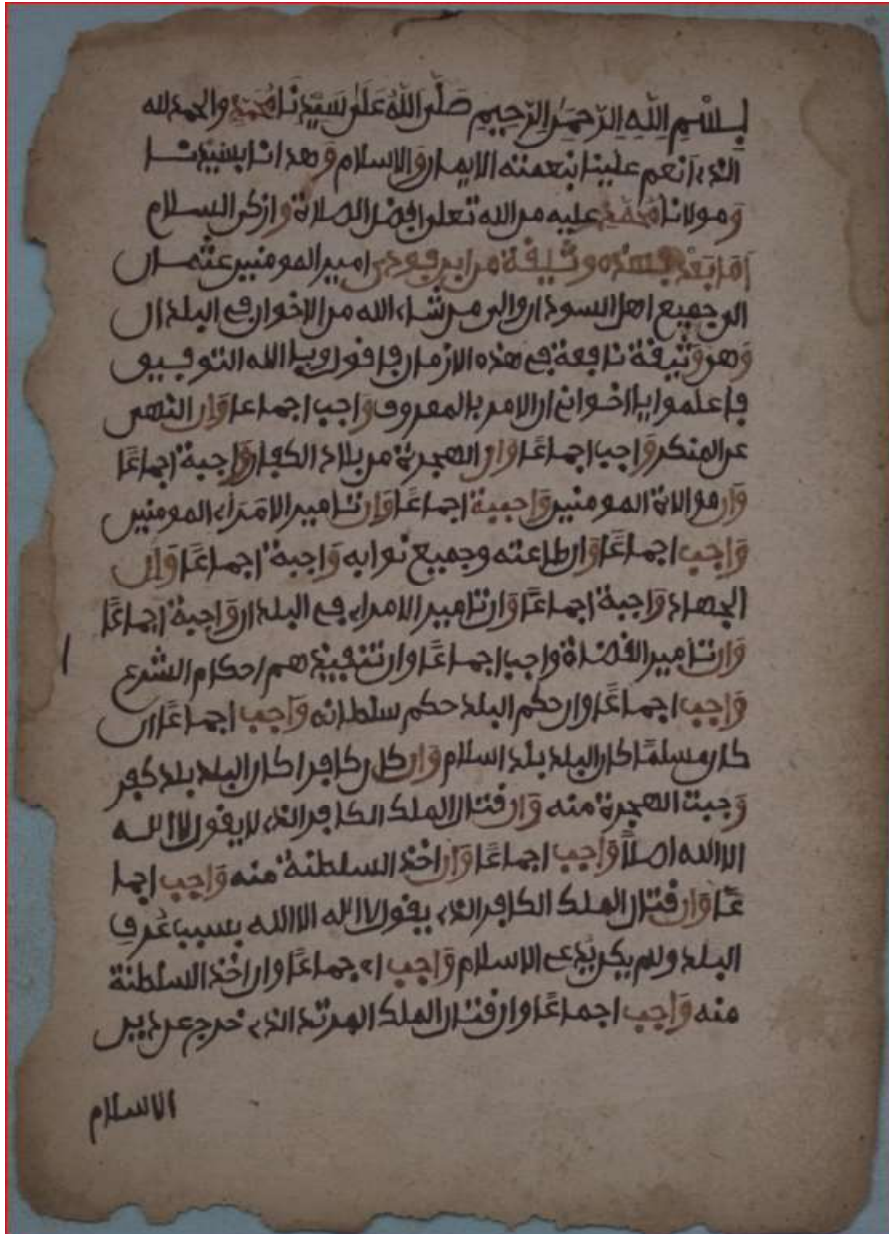 بِسْمِ اللَّهِ الرَّحْمَٰنِ الرَّحِيمِ صَلَّى اللَّهُ عَلَىٰ سَيِّدِنَا مُحَمَّدٍ والحمد لله
الذي أنعم علينا بنعمته الايمان وَالاسلام وَهدانا بسيدنا
وَمولانا مُحَمَّدٍ عليه من الله تعلى افضل الصلاة وَازكى السلام
أَمَّا بَعْدُ فهذه وثيقة من ابن فودي امير المومنين عثمان
الى جميع اهل السودان والى من شاء الله من الاخوان في البلدان
وَهي وَثيقة نافعة في هذه الازمان فاقول وبالله التوفيق
فاعلموا يا اخواني ان الامر بالمعروف وَاجب اجماعا وَان النهي
عن المنكر وَاجب اجماعًا وَان الهجرة من بلاد الكفار وَاجبة اجماعًا
وَان موالاة المومنين وَاجبة اجماعًا وَان تامير الامَرَاء المومنين
وَاجب اجماعًا وَان طاعته وجميع نوابه وَاجبة اجماعًا وَان
الجهاد وَاجبة اجماعًا وَان تامير الامراء في البلدان وَاجبة اجماعًا
وَان تامير القضاة واجب اجماعًا وان تنفيذهم احكام الشرع
وَاجب اجماعًا وان حكم البلد حكم سلطانه وَاجب اجماعًا ان
كان مسلمًا كان البلد بلد اسلام وَان كان كافرا كان البلد بلد كفر
وَجبت الهجرة منه وَان قتال الملك الكافر الذي لا يقول لا اله
الا الله اصلاً وَاجب اجماعًا وَان اخذ السلطنة منه وَاجب اجما
عًا وَان قتال الملك الكافر الذي يقول لا اله الا الله بسبب عُرف
البلد ولم يكن يدعي الاسلام وَاجب اجماعًا وان اخذ السلطنة
منه وَاجب اجماعًا وان قتال الملك المرتد الذي خرج عن دين
الاسلام